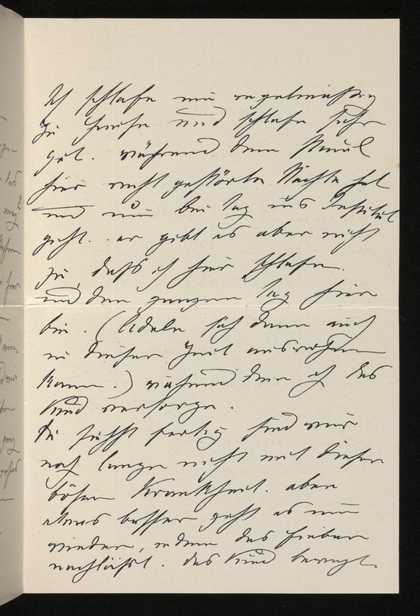 Ich schlafe nun regelmässig
zu Hause und schlafe sehr
gut. während dem Paul
hier nicht gestörte Nächte hat
und nun bei Tag ins Institut
geht. er gibt es aber nicht
zu, dass ich hier schlafe.
und den ganzen Tag hier
bin. (Adele sich dann auch
in dieser Zeit ausruhen
kann.) während dem ich das
Kind versorge.
Du siehst fertig sind wir
noch lange nicht mit dieser
bösen Krankheit. aber
etwas besser geht es nun
wieder, indem das Fieber
nachlässt. das Kind bewegt